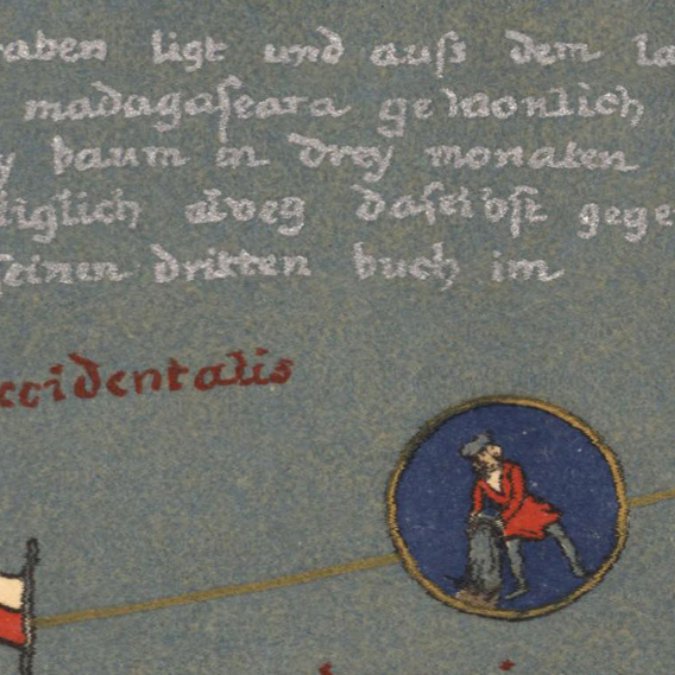 raben ligt und auſs dem la
madagaſcara gewonlich
y baum in drey monaten
diglich alweg daſelbſt gege
ſeinen dritten buch im
ccidentalis